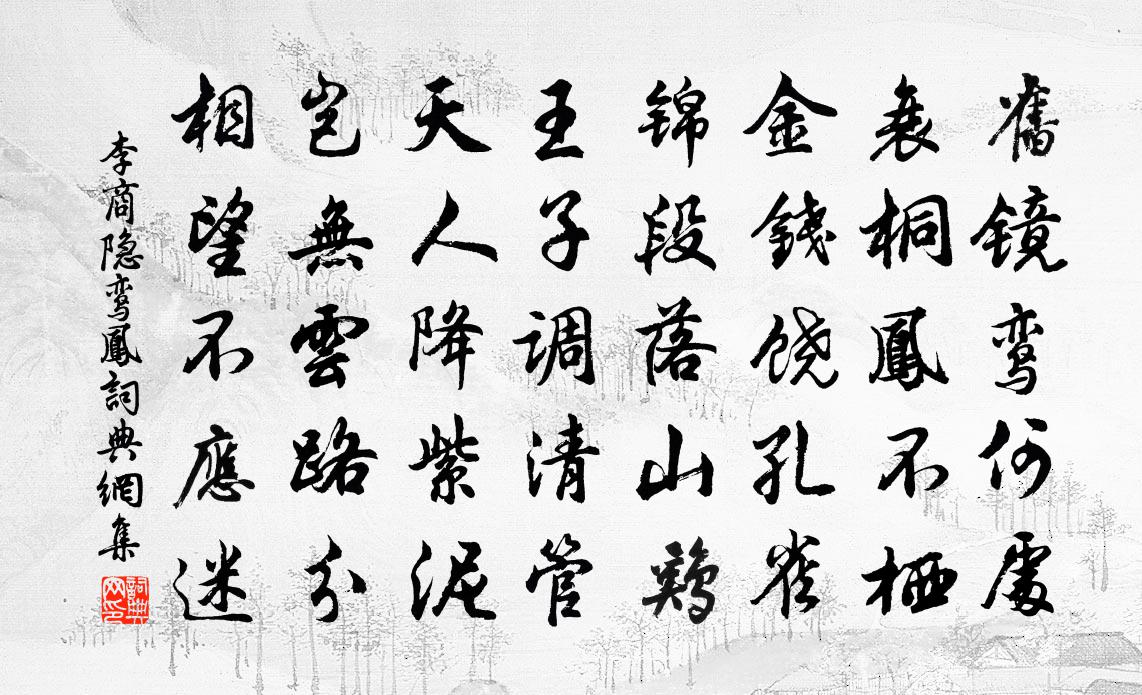 舊镜鸾何處
衰桐鳳不栖
金錢饶孔雀
锦段落山鷄
王子调清管
天人降紫泥
岂無雲路分
相望不應迷
李商隐鸾鳳詞典網集
詞典网印